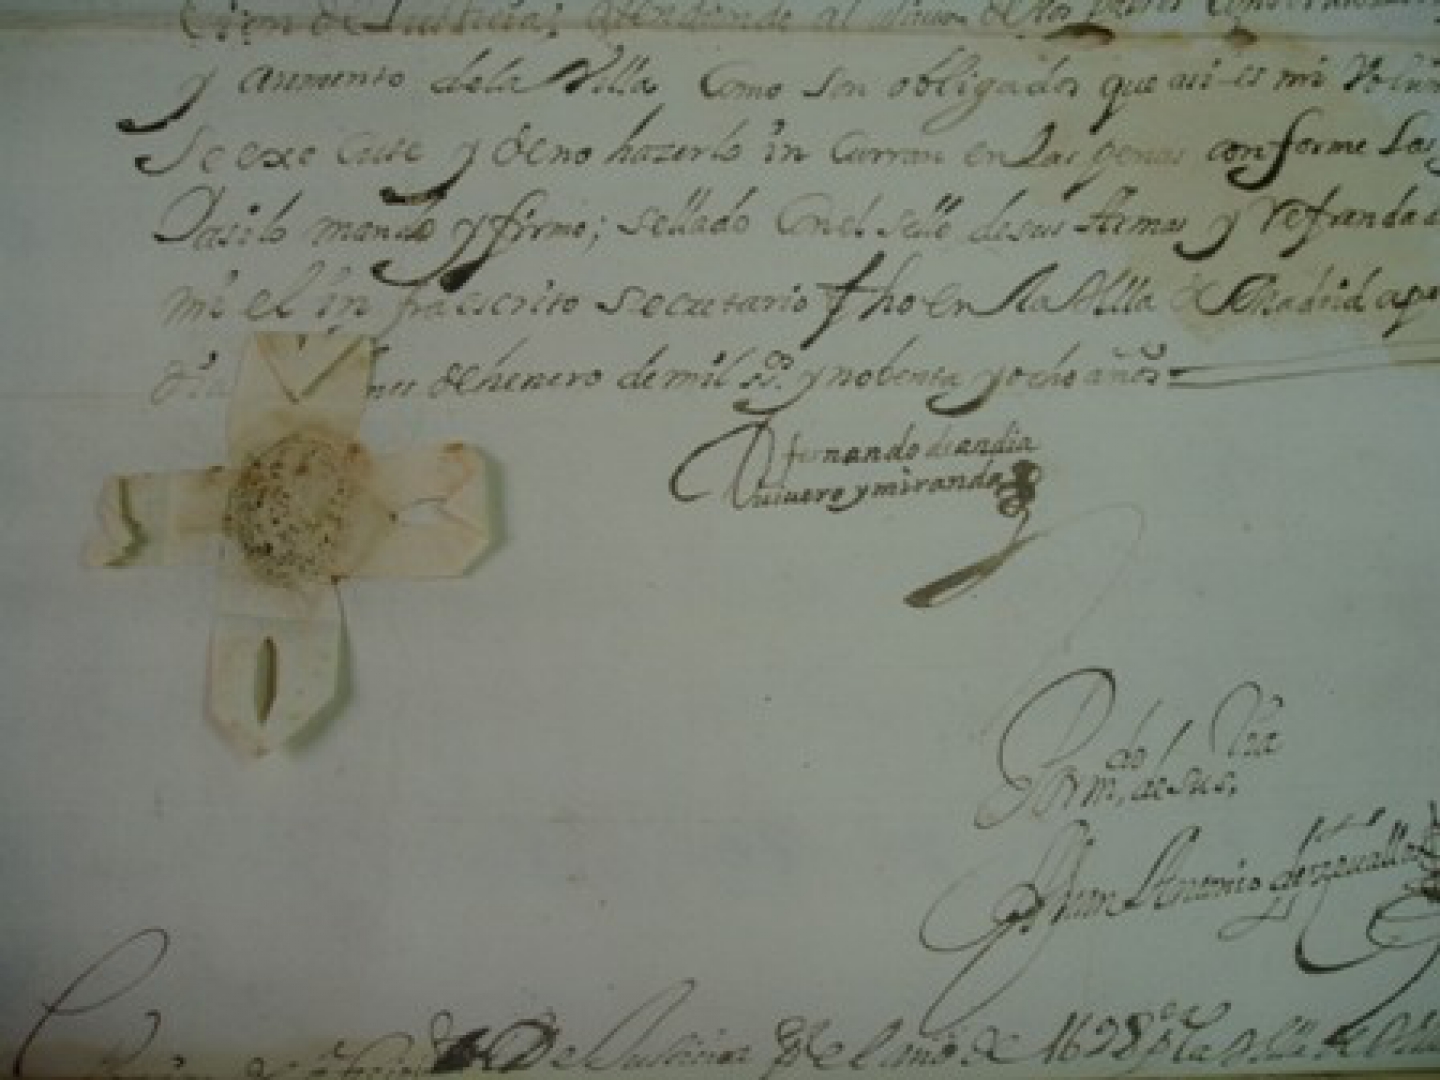 cion de Justicia; atendiendo al
y aumento dela Villa Como son obligados que asi es mi Volun
Se exe cute y deno hazerlo in Curran en Las penas conforme Los
Yasi lo mando y firmo; sellado Conel sello desus Armas y refrendado
mi el in fraescrito secretario fho en la Villa de Madrid a
dia nes dehenero de mil ss.os y nobenta y ocho años
D fernando de andia
Viuero y miranda
Por mdo de su sra
Juan Antonio deZeuallos
De Justicia el año de 1698 la Villa de